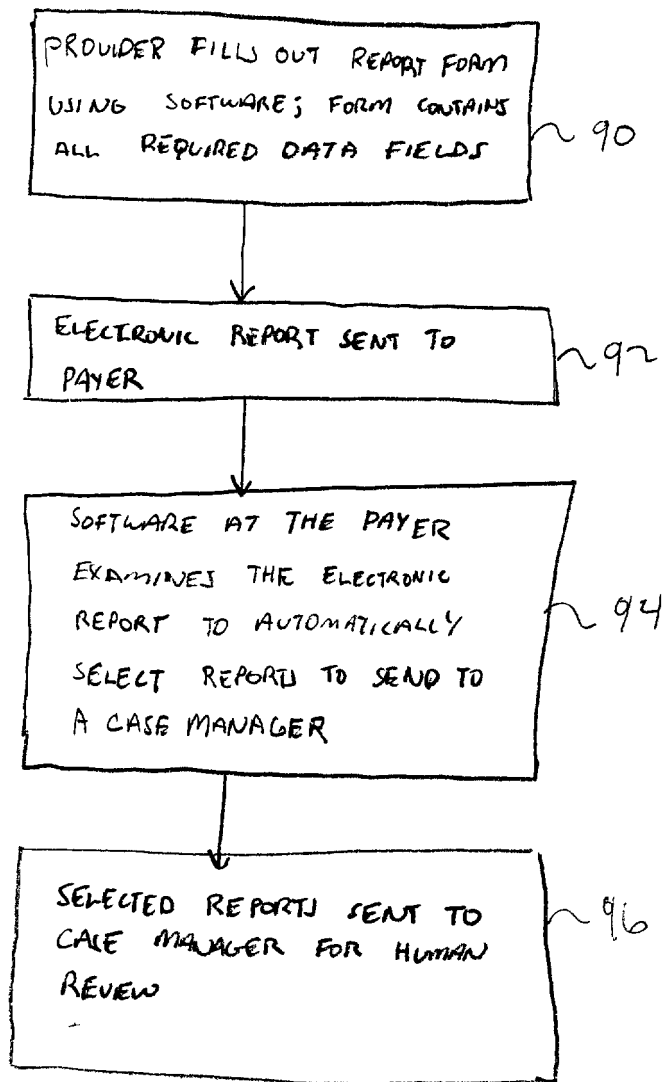 PROVIDER FILLS OUT REPORT FORM
USING SOFTWARE; FORM CONTAINS
ALL REQUIRED DATA FIELDS
90
ELECTRONIC REPORT SENT TO
PAYER
92
SOFTWARE AT THE PAYER
EXAMINES THE ELECTRONIC
REPORT TO AUTOMATICALLY
SELECT REPORTS TO SEND TO
A CASE MANAGER
94
SELECTED REPORTS SENT TO
CASE MANAGER FOR HUMAN
REVIEW
96